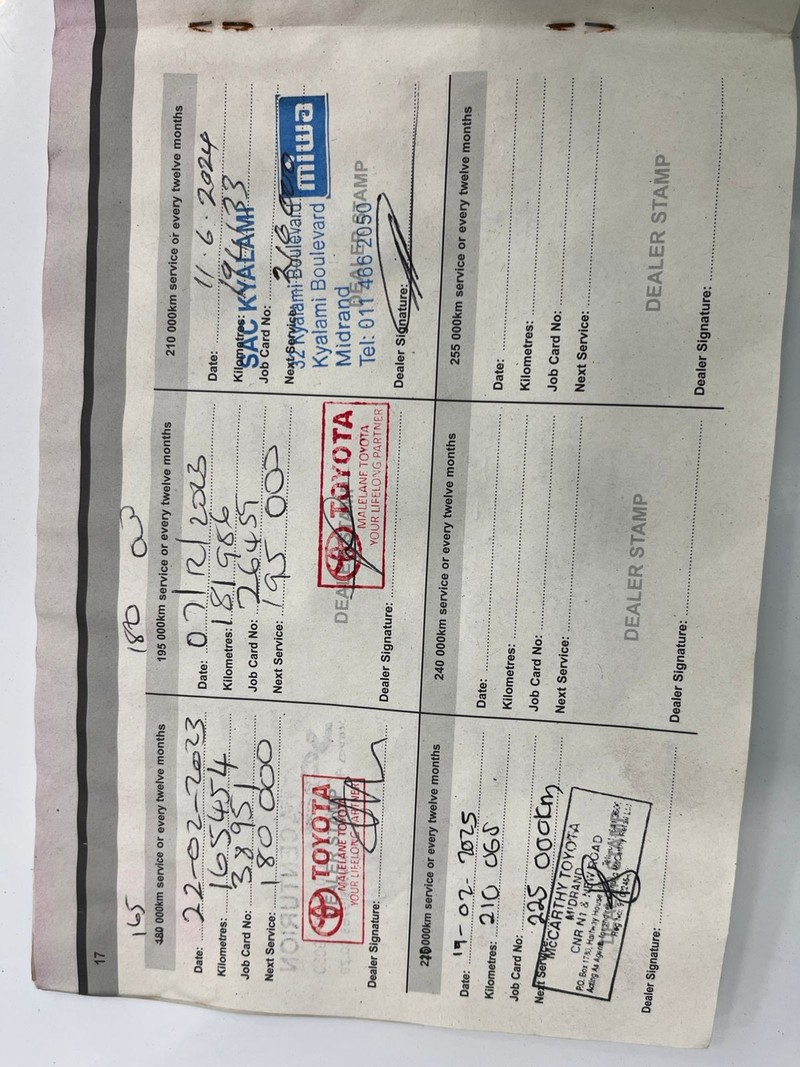 17
165
180 000km service or every twelve months
Date: 22-02-2023
Kilometres: 165454
Job Card No: 38951
Next Service: 180 000
DEALER STAMP
TOYOTA
MALELANE TOYOTA
YOUR LIFELONG PARTNER
Dealer Signature:
180 000
195 000km service or every twelve months
Date: 07/12/2023
Kilometres: 181986
Job Card No: 26459
Next Service: 195 000
TOYOTA
MALELANE TOYOTA
YOUR LIFELONG PARTNER
Dealer Signature:
210 000km service or every twelve months
Date: 11.6.2024
Kilometres: 194633
SAC KYALAMI
Job Card No:
Next Service: 210 000
32 Kyalami Boulevard
Kyalami Boulevard
miwa
Midrand
DEALER STAMP
Tel: 011 466 2050
Dealer Signature:
000km service or every twelve months
Date: 19-02-2025
Kilometres: 210 065
Job Card No:
Next Service: 225 000km
McCARTHY TOYOTA
MIDRAND
CNR N1 & NEW ROAD
P.O. Box 1750, Halfway House
Dealer Signature:
240 000km service or every twelve months
Date:
Kilometres:
Job Card No:
Next Service:
DEALER STAMP
Dealer Signature:
255 000km service or every twelve months
Date:
Kilometres:
Job Card No:
Next Service:
DEALER STAMP
Dealer Signature: